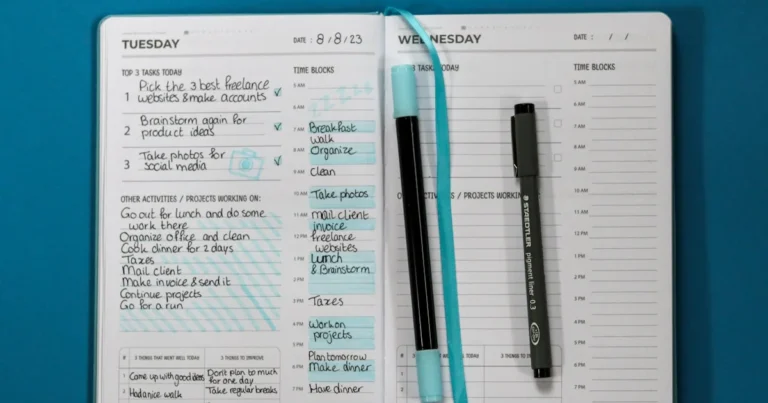 TUESDAY
DATE : 8 / 8 / 23
TOP 3 TASKS TODAY
1 Pick the 3 best freelance
websites & make accounts
2 Brainstorm again for
product ideas
3 Take photos for
social media
OTHER ACTIVITIES / PROJECTS WORKING ON:
Go out for lunch and do some
work there
Organize office and clean
Cook dinner for 2 days
Taxes
Mail client
Make invoice & send it
Continue projects
Go for a run
# 3 THINGS THAT WENT WELL TODAY 3 THINGS TO IMPROVE
1 Come up with good ideas Don't plan to much
for one day
2 Had a nice walk Take regular breaks
TIME BLOCKS
5 AM
6 AM
7 AM Breakfast
walk
8 AM Organize
9 AM Clean
10 AM Take photos
11 AM Mail client
invoice
12 PM freelance
websites
1 PM Lunch
2 PM & Brainstorm
3 PM Taxes
4 PM Work on
projects
5 PM
Plan tomorrow
6 PM Make dinner
7 PM Have dinner
WEDNESDAY
DATE : / /
3 TASKS TODAY
TIME BLOCKS
5 AM
6 AM
7 AM
8 AM
9 AM
10 AM
11 AM
12 PM
1 PM
2 PM
3 PM
4 PM
5 PM
6 PM
7 PM
/ PROJECTS WORKING
# 3 THINGS THAT WENT TODAY 3 THINGS TO
STAEDTLER
pigment liner 0.3